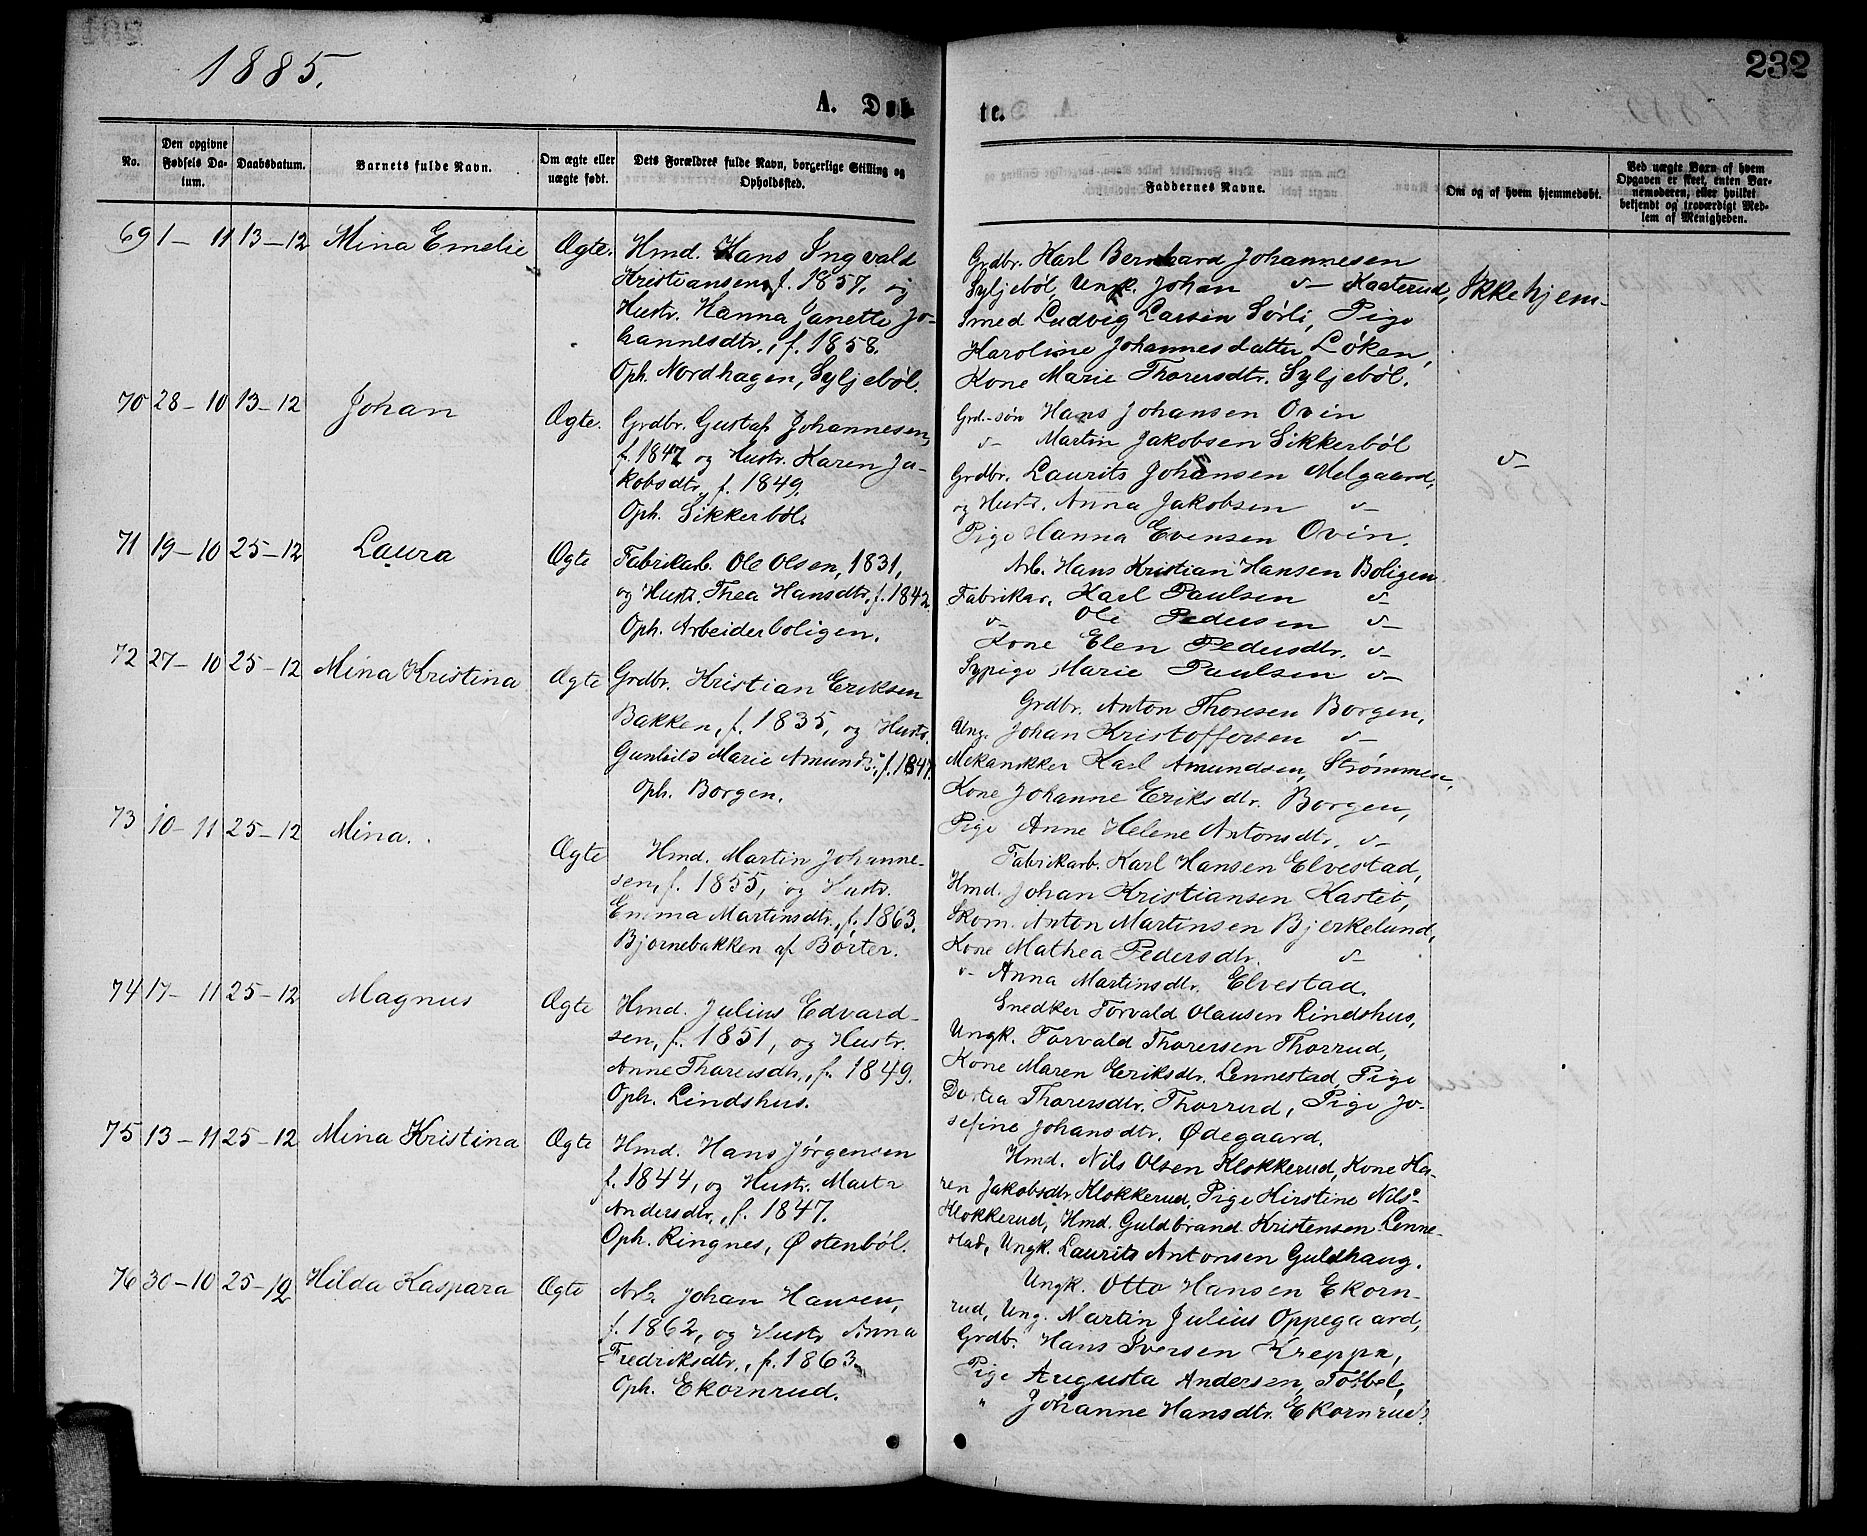 1885.
232
A. Døbte.
No.
Den opgivne Fødsels Datum.
Daabsdatum.
Barnets fulde Navn.
Om ægte eller uægte født.
Dets Forældres fulde Navn, borgerlige Stilling og Opholdsted.
Faddernes Navne.
Om og af hvem hjemmedøbt.
Ved uægte Barn af hvem Opgaven er skeet, enten Barnemoderen, eller hvilket bekjendt og troværdigt Medlem af Menigheden.
69 1-11 13-12 Mina Emelie Ægte.
Hmd. Hans Ingvald
Kristiansen, f. 1857, og
Hustr. Hanna Janette Jo-
hannesdtr., f. 1858.
Oph. Nordhagen, Syljeböl.
Grdbr. Karl Bernhard Johannesen
Syljeböl, Ungk. Johan v- Kaaterud,
Smed Ludvig Larsen Sörli, Pige
Karoline Johannesdatter Løken,
Kone Marie Thoresdtr. Syljeböl.
Ikke hjem-
70 28-10 13-12 Johan Ægte.
Grdbr. Gustaf Johannesen,
f. 1847 og Hustr. Karen Ja-
kobsdtr, f. 1849,
Oph. Sikkerböl.
Grd.-sön Hans Johansen Ovin
v- Martin Jakobsen Sikkerböl
Grdbr. Laurits Johansen Melgaard,
og Hustr. Anna Jakobsen v-
Pige Hanna Evensen Ovin.
v-
71 19-10 25-12 Laura Ægte
Fabrikarb. Ole Olsen, 1831,
og Hustr. Thea Hansdtr., f. 1842.
Oph. Arbeiderboligen.
Arb. Hans Kristian Hansen Boligen
Fabrikar. Karl Paulsen v-
v- Ole Pedersen v-
Kone Elen Pedersdtr. v-
Sypige Marie Paulsen v-
72 27-10 25-12 Mina Kristina Ægte
Grdbr. Kristian Eriksen
Bakken, f. 1835, og Hustr.
Gunhild Marie Amunds., f. 1847.
Oph. Borgen.
Grdbr. Anton Thoresen Borgen,
Ung. Johan Kristoffersen v-
Mekanikker Karl Amundsen, Strømmen,
Kone Johanne Eriksdtr. Borgen,
Pige Anne Helene Antonsdtr. v-
73 10-11 25-12 Mina. Ægte
Hmd. Martin Johanne-
sen, f. 1855, og Hustr.
Emma Martinsdtr., f. 1863.
Bjørnebakken af Börter.
Fabrikarb. Karl Hansen Elvestad,
Hmd. Johan Kristiansen Kastet,
Skom. Anton Martinsen Bjerkelund,
Kone Mathea Pedersdtr. v-
v- Anna Martinsdtr. Elvestad.
74 17-11 25-12 Magnus Ægte
Hmd. Julius Edvard-
sen, f. 1851, og Hustr.
Anne Thoresdtr., f. 1849.
Oph. Lindshus.
Snedker Torvald Olausen Rindshus,
Ungk. Torvald Thorersen Thorrud,
Kone Maren Eriksdtr. Lennestad, Pige
Dortea Thorersdtr. Thorrud, Pige Jo-
sefine Johansdtr. Ødegaard.
75 13-11 25-12 Mina Kristina Ægte
Hmd. Hans Jørgensen
f. 1844, og Hustr. Marte
Andersdtr., f. 1847.
Oph. Ringnes, Østenböl.
Hmd. Nils Olsen Klokkerud, Kone Ka-
ren Jakobsdtr Klokkerud, Pige Kirstine Nils-
Klokkerud, Hmd. Guldbrand Kristensen Lenne-
stad, Ungk. Laurits Antonsen Guldhaug.
76 30-10 25-12 Hilda Kaspara Ægte
Arb. Johan Hansen,
f. 1862, og Hustr Anna
Fredriksdtr., f. 1863.
Oph. Ekornrud.
Ungk. Otto Hansen Ekorn-
rud, Ung. Martin Julius Oppegaard,
Grdbr. Hans Iversen Kreppa,
Pige Augusta Andersen, Tosbel,
" Johanne Hansdtr. Ekornrud.